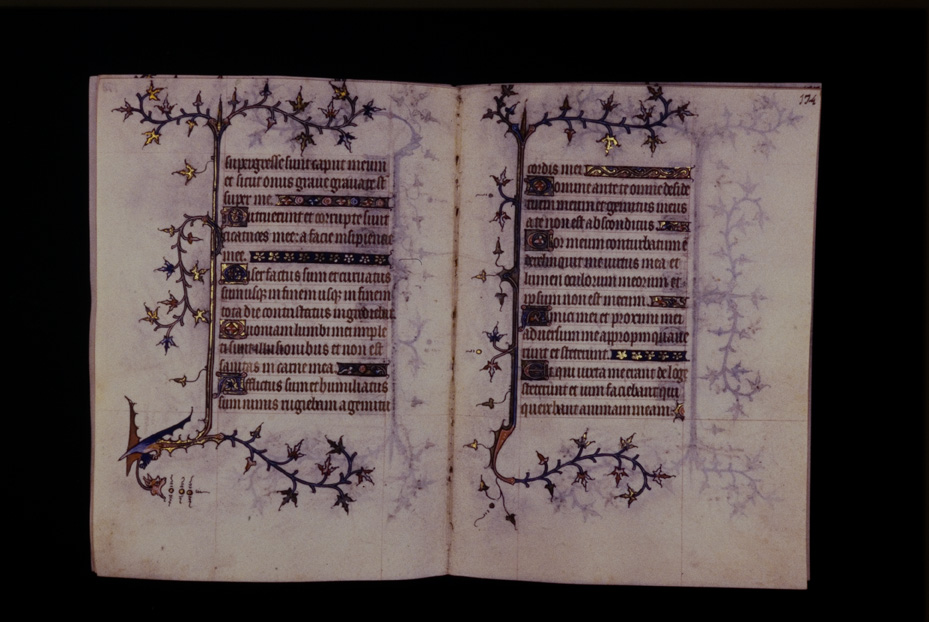 supergresse sunt caput meum
et sicut onus graue grauate st
super me.
Putruerunt et corrupte sunt
cicatrices mee: a facie insipientie
mee.
Miser factus sum et curuatus
sum usqz in finem usqz in finem
tota die contristatus ingrediebar
Quoniam lumbi mei imple
ti sunt illusionibus et non est
sanitas in carne mea.
Afflictus sum et humiliatus
sum nimis rugiebam a gemitu
124
cordis mei.
Domine ante te omne deside
rium meum et gemitus meus
a te non est absconditus
Cor meum conturbatum e
dereliquit me uirtus mea et
lumen oculorum meorum et
ipsum non est mecum.
Amici mei et proximi mei
aduersum me appropinquaue
runt et steterunt
Et qui iuxta me erant de loge
steterunt et uim faciebant qui
querebant animam meam